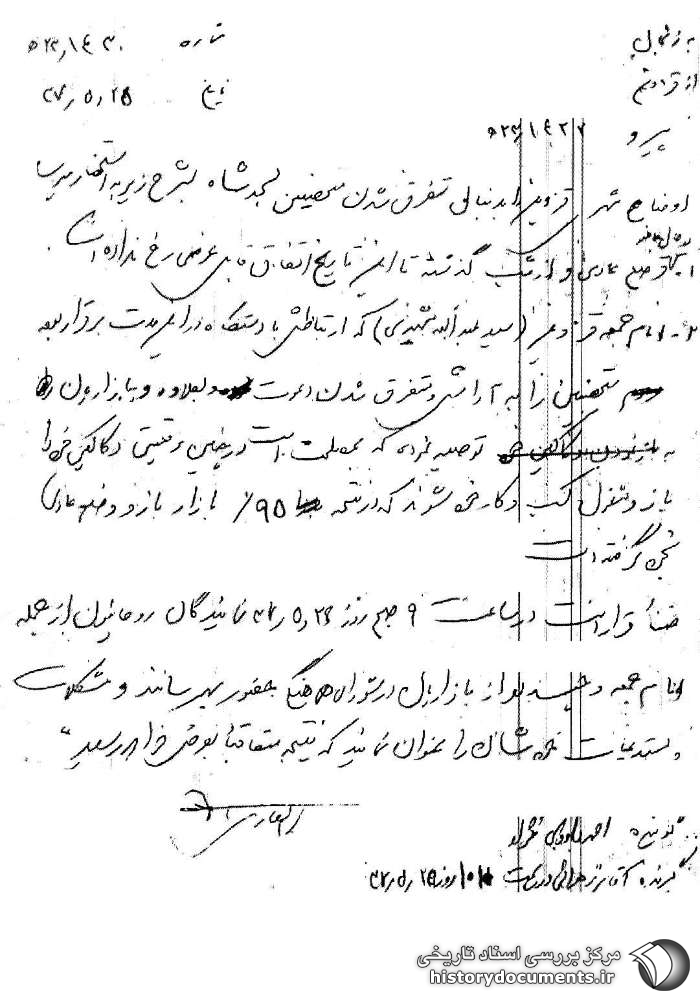 به زنجان شماره ۵۲۳٫۱۴۳۰
از قزوین تاریخ ۳۷٫۵٫۲۵
پیرو ۵۲۳٫۱۴۲۷
اوضاع شهر قزوین بدنبال متفرق شدن متحصنین مسجد شاه بشرح زیر به استحضار میرسد
۱- وضع عادی و از شب گذشته تا این تاریخ اتفاق قابل عرضی رخ نداده است
۲- امام جمعه قزوین (سید عبدالله) که ارتباطش با دستگاه در این مدت برقرار بوده
متحصنین را به آرامش و متفرق شدن دعوت و بعلاوه و بازاریان را
به توصیه نموده که به مصلحت است در چنین موقعیتی دکاکین خود را
باز و مشغول کسب و کار خود شوند که در نتیجه ۹۵٪ بازار باز و وضع عادی
بخود گرفته است
ضمناً قرار است در ساعت ۹ صبح روز نمایندگان روحانیون از جمله
امام جمعه و چند نفر از بازاریان در شورای هماهنگی حضور بهم رسانند و مشکلات
و مستدعیات خودشان را عنوان نمایند که نتیجه متعاقباً بعرض خواهد رسید
گوینده
گیرنده ساعت روز
مرکز بررسی اسناد تاریخی
historydocuments.ir